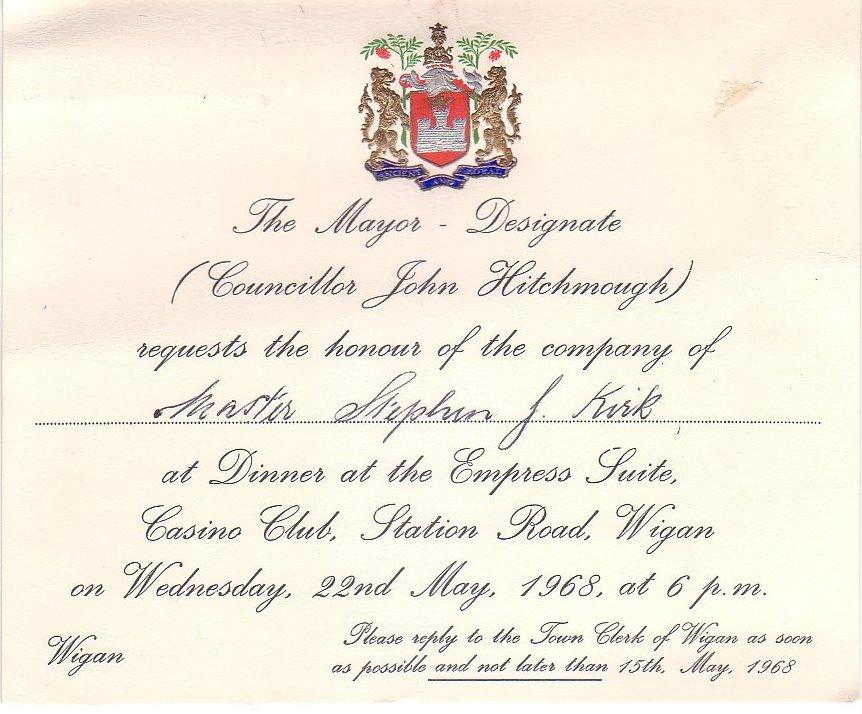 ANCIENT AND LOYAL
The Mayor - Designate
(Councillor John Hitchmough)
requests the honour of the company of
Master Stephen J. Kirk
at Dinner at the Empress Suite,
Casino Club, Station Road, Wigan
on Wednesday, 22nd May, 1968, at 6 p.m.
Wigan
Please reply to the Town Clerk of Wigan as soon
as possible and not later than 15th, May, 1968